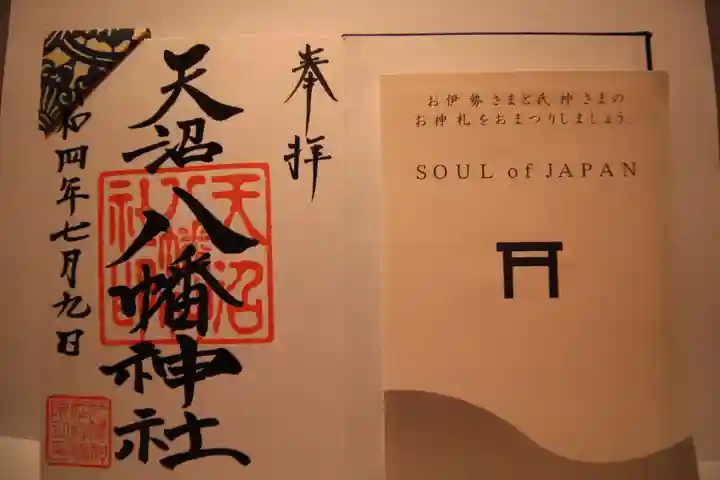 奉拝
天沼八幡神社
和四年七月九日
天沼
八幡
社印
お伊勢さまと氏神さまの
お神札をおまつりしましょう。
SOUL of JAPAN